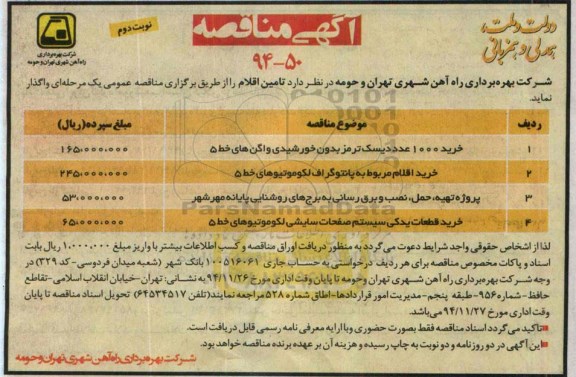 دولت و ملت،
همدلی و همزبانی
آگهی مناقصه
نوبت دوم
۹۴-۵۰
شرکت بهره‌برداری
راه آهن شهری تهران و حومه
شرکت بهره‌برداری راه آهن شهری تهران و حومه در نظر دارد تامین اقلام را از طریق برگزاری مناقصه عمومی یک مرحله‌ای واگذار
نماید.
ردیف موضوع مناقصه مبلغ سپرده (ریال)
۱ خرید ۱۰۰۰ عدد دیسک ترمز بدون خورشیدی واگن های خط ۵ ۱۶۵،۰۰۰،۰۰۰
۲ خرید اقلام مربوط به پانتوگراف لکوموتیوهای خط ۵ ۲۴۵،۰۰۰،۰۰۰
۳ پروژه تهیه، حمل، نصب و برق رسانی به برج های روشنایی پایانه مهرشهر ۵۳،۰۰۰،۰۰۰
۴ خرید قطعات یدکی سیستم صفحات سایشی لکوموتیوهای خط ۵ ۶۵،۰۰۰،۰۰۰
ParsNamadData
لذا از اشخاص حقوقی واجد شرایط دعوت می‌گردد به منظور دریافت اوراق مناقصه و کسب اطلاعات بیشتر با واریز مبلغ ۱،۰۰۰،۰۰۰ ریال بابت
اسناد و پاکات مخصوص مناقصه برای هر ردیف درخواستی به حساب جاری ۱۰۰۵۱۶۰۶۱ بانک شهر (شعبه میدان فردوسی- کد ۳۲۹) در
وجه شرکت بهره‌برداری راه آهن شهری تهران وحومه تا پایان وقت اداری مورخ ۹۴/۱۱/۲۶ به نشانی: تهران -خیابان انقلاب اسلامی-تقاطع
حافظ- شماره ۹۵۶- طبقه پنجم- مدیریت امور قراردادها- اطاق شماره ۵۲۸ مراجعه نمایند (تلفن ۶۴۵۳۴۵۱۷) تحویل اسناد مناقصه تا پایان
وقت اداری مورخ ۹۴/۱۱/۲۷ می‌باشد.
*تاکید می‌گردد اسناد مناقصه فقط بصورت حضوری و با ارایه معرفی نامه رسمی قابل دریافت است.
*این آگهی در دو روزنامه و دو نوبت به چاپ رسیده و هزینه آن بر عهده برنده مناقصه خواهد بود.
شرکت بهره‌برداری راه آهن شهری تهران و حومه